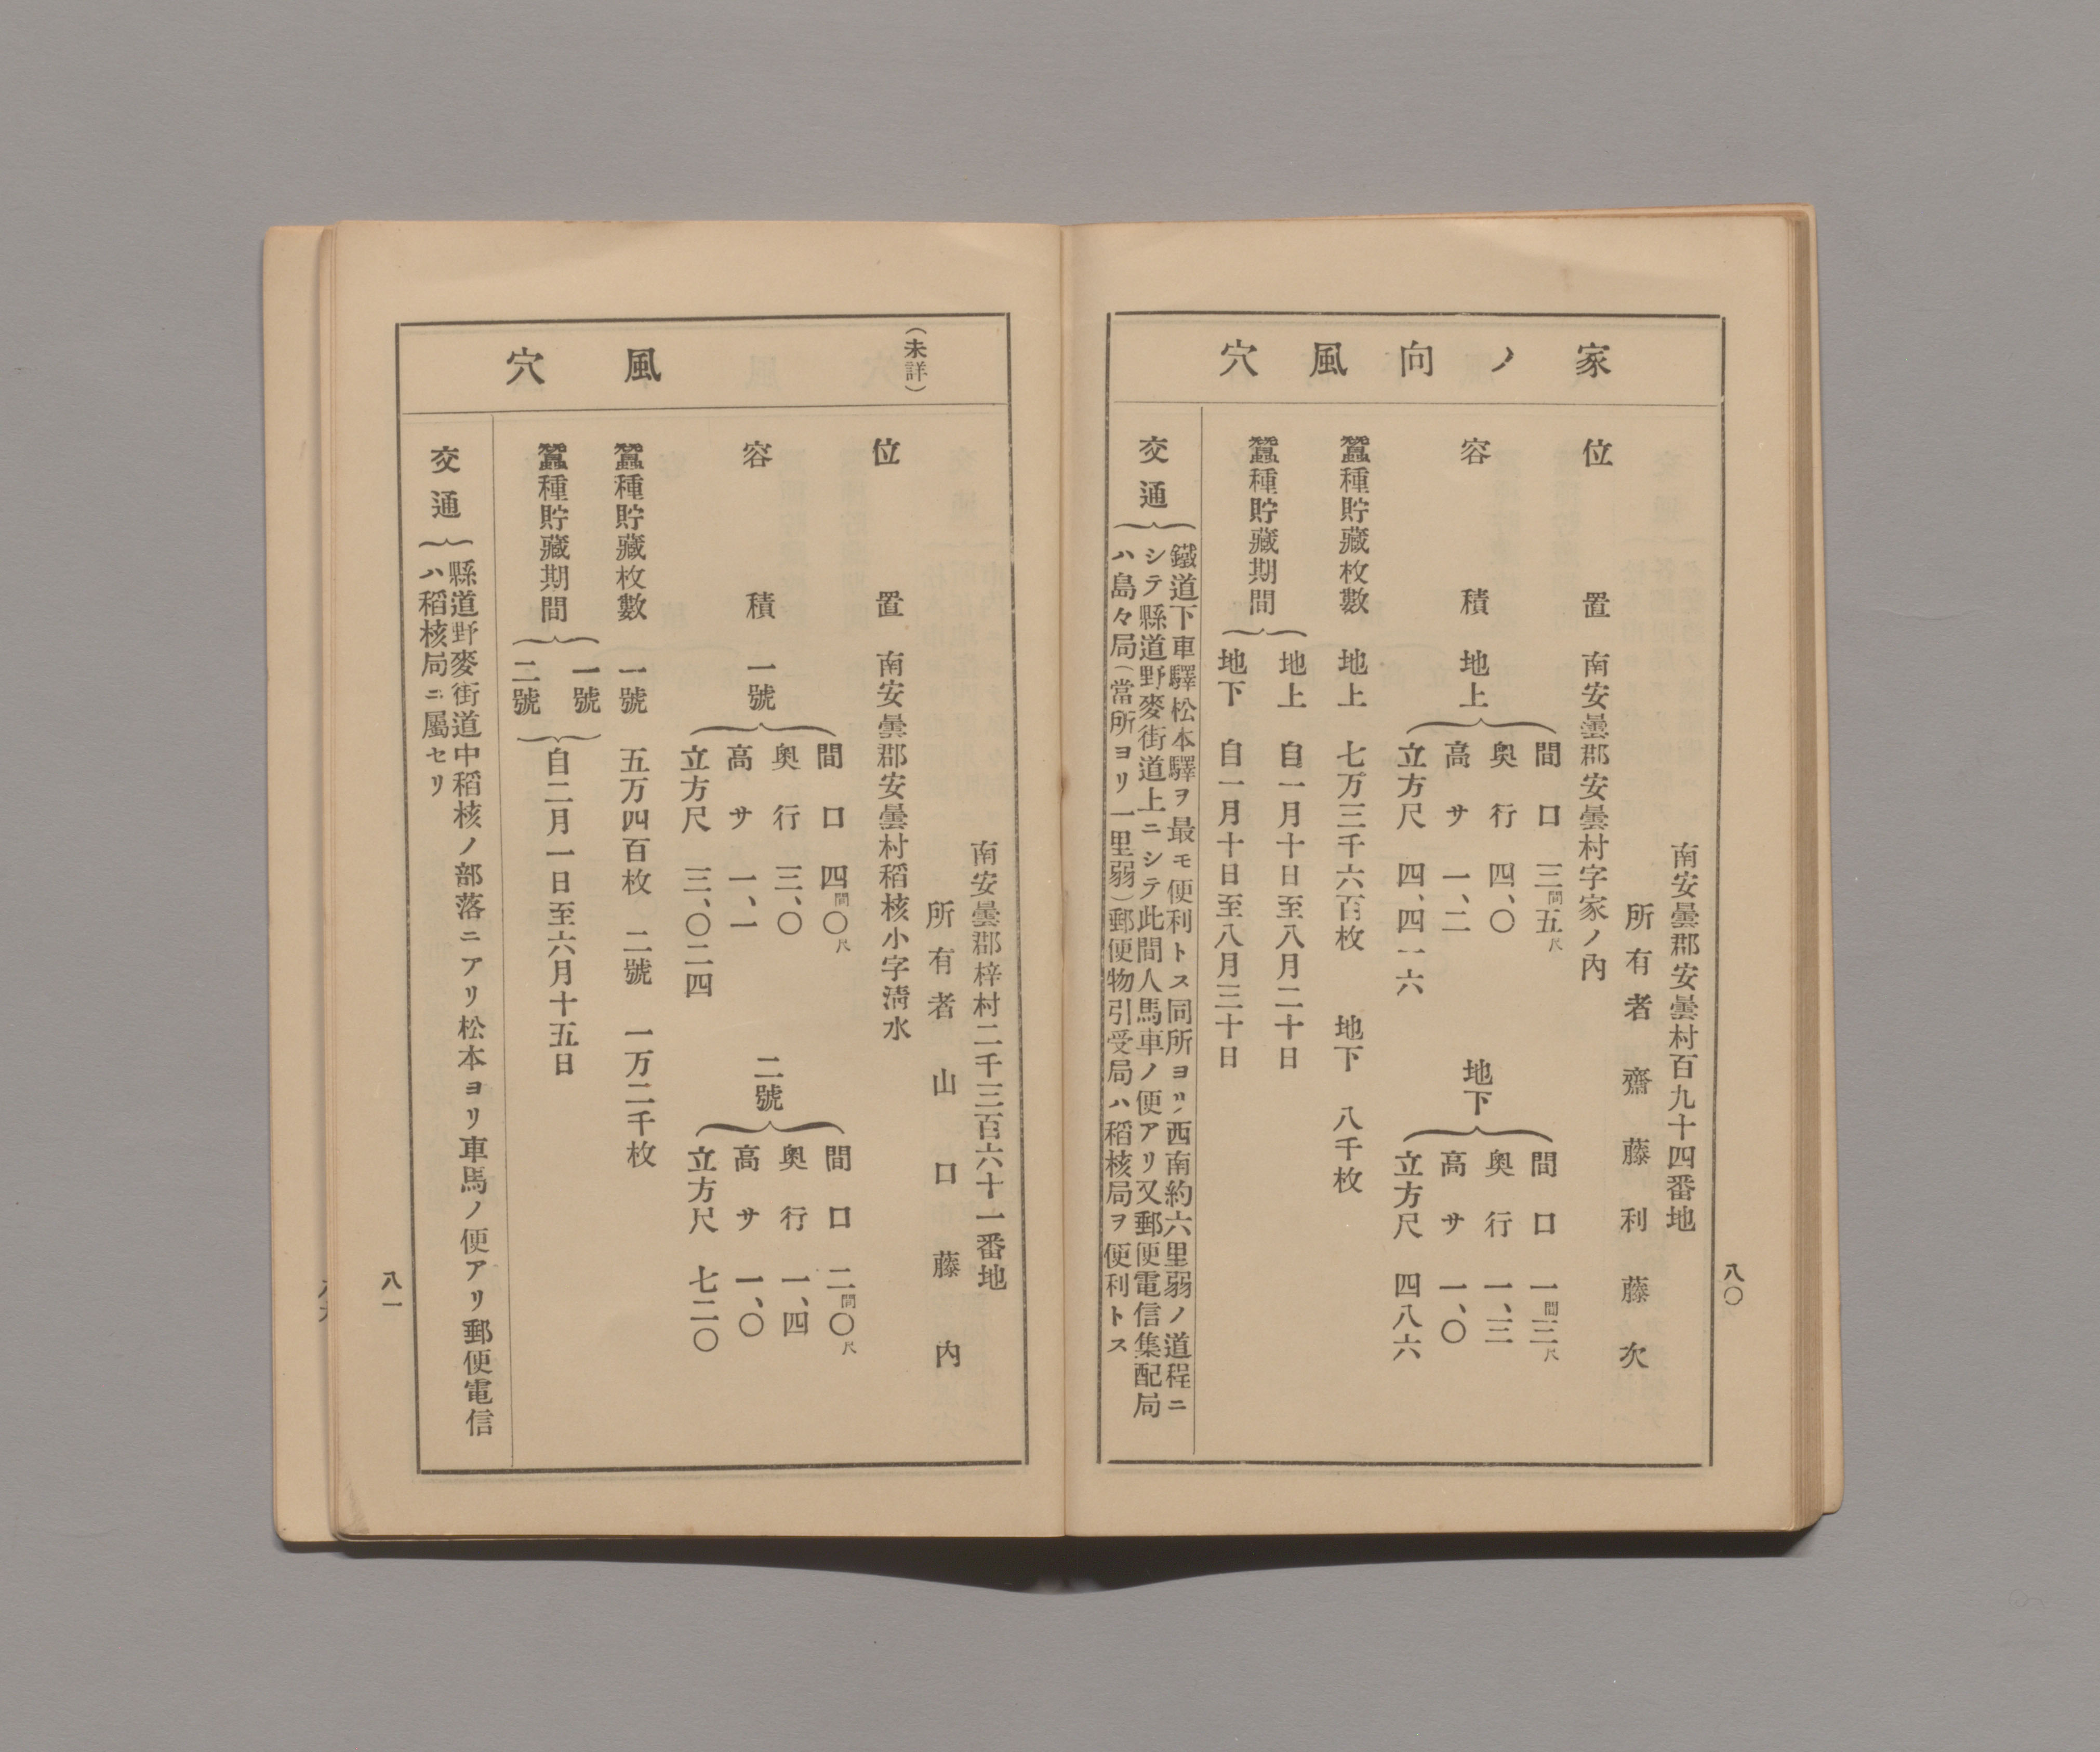 家ノ向風穴
南安曇郡安曇村百九十四番地
所有者 齋藤利藤次
位置 南安曇郡安曇村字家ノ內
容積
地上
間口 三間五尺
奧行 四、〇
高サ 一、二
立方尺 四、四一六
地下
間口 一間三尺
奧行 一、三
高サ 一、〇
立方尺 四八六
蠶種貯藏枚數 地上 七万三千六百枚 地下 八千枚
蠶種貯藏期間
地上 自一月十日至八月二十日
地下 自一月十日至八月三十日
交通
鐵道下車驛松本驛ヲ最モ便利トス同所ヨリ西南約六里弱ノ道程ニ
シテ縣道野麥街道上ニシテ此間人馬車ノ便アリ又郵便電信集配局
ハ島々局(當所ヨリ一里弱)郵便物引受局ハ稻核局ヲ便利トス
八〇
(未詳)風穴
南安曇郡梓村二千三百六十一番地
所有者 山口藤內
位置 南安曇郡安曇村稻核小字淸水
容積
一號
間口 四間〇尺
奧行 三、〇
高サ 一、一
立方尺 三、〇二四
二號
間口 二間〇尺
奧行 一、四
高サ 一、〇
立方尺 七二〇
蠶種貯藏枚數 一號 五万四百枚 二號 一万二千枚
蠶種貯藏期間
一號
二號
自二月一日至六月十五日
交通
縣道野麥街道中稻核ノ部落ニアリ松本ヨリ車馬ノ便アリ郵便電信
ハ稻核局ニ屬セリ
八一